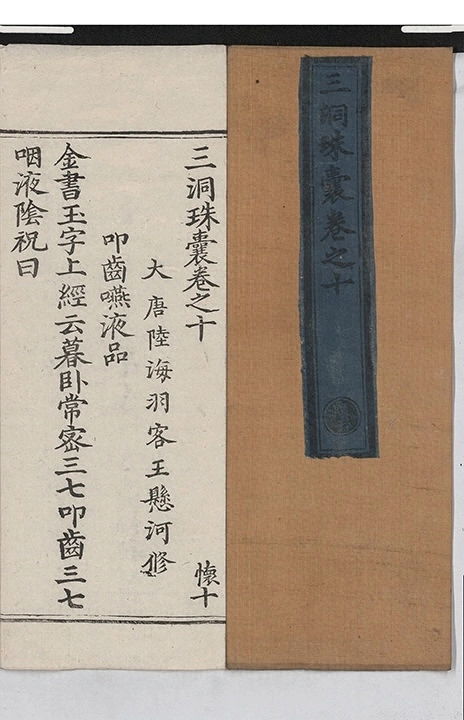 三洞珠囊卷之十
三洞珠囊卷之十
懷十
大唐陸海羽客王懸河修
叩齒嚥液品
金書玉字上經云暮卧常宻三七叩齒三七
咽液陰祝曰